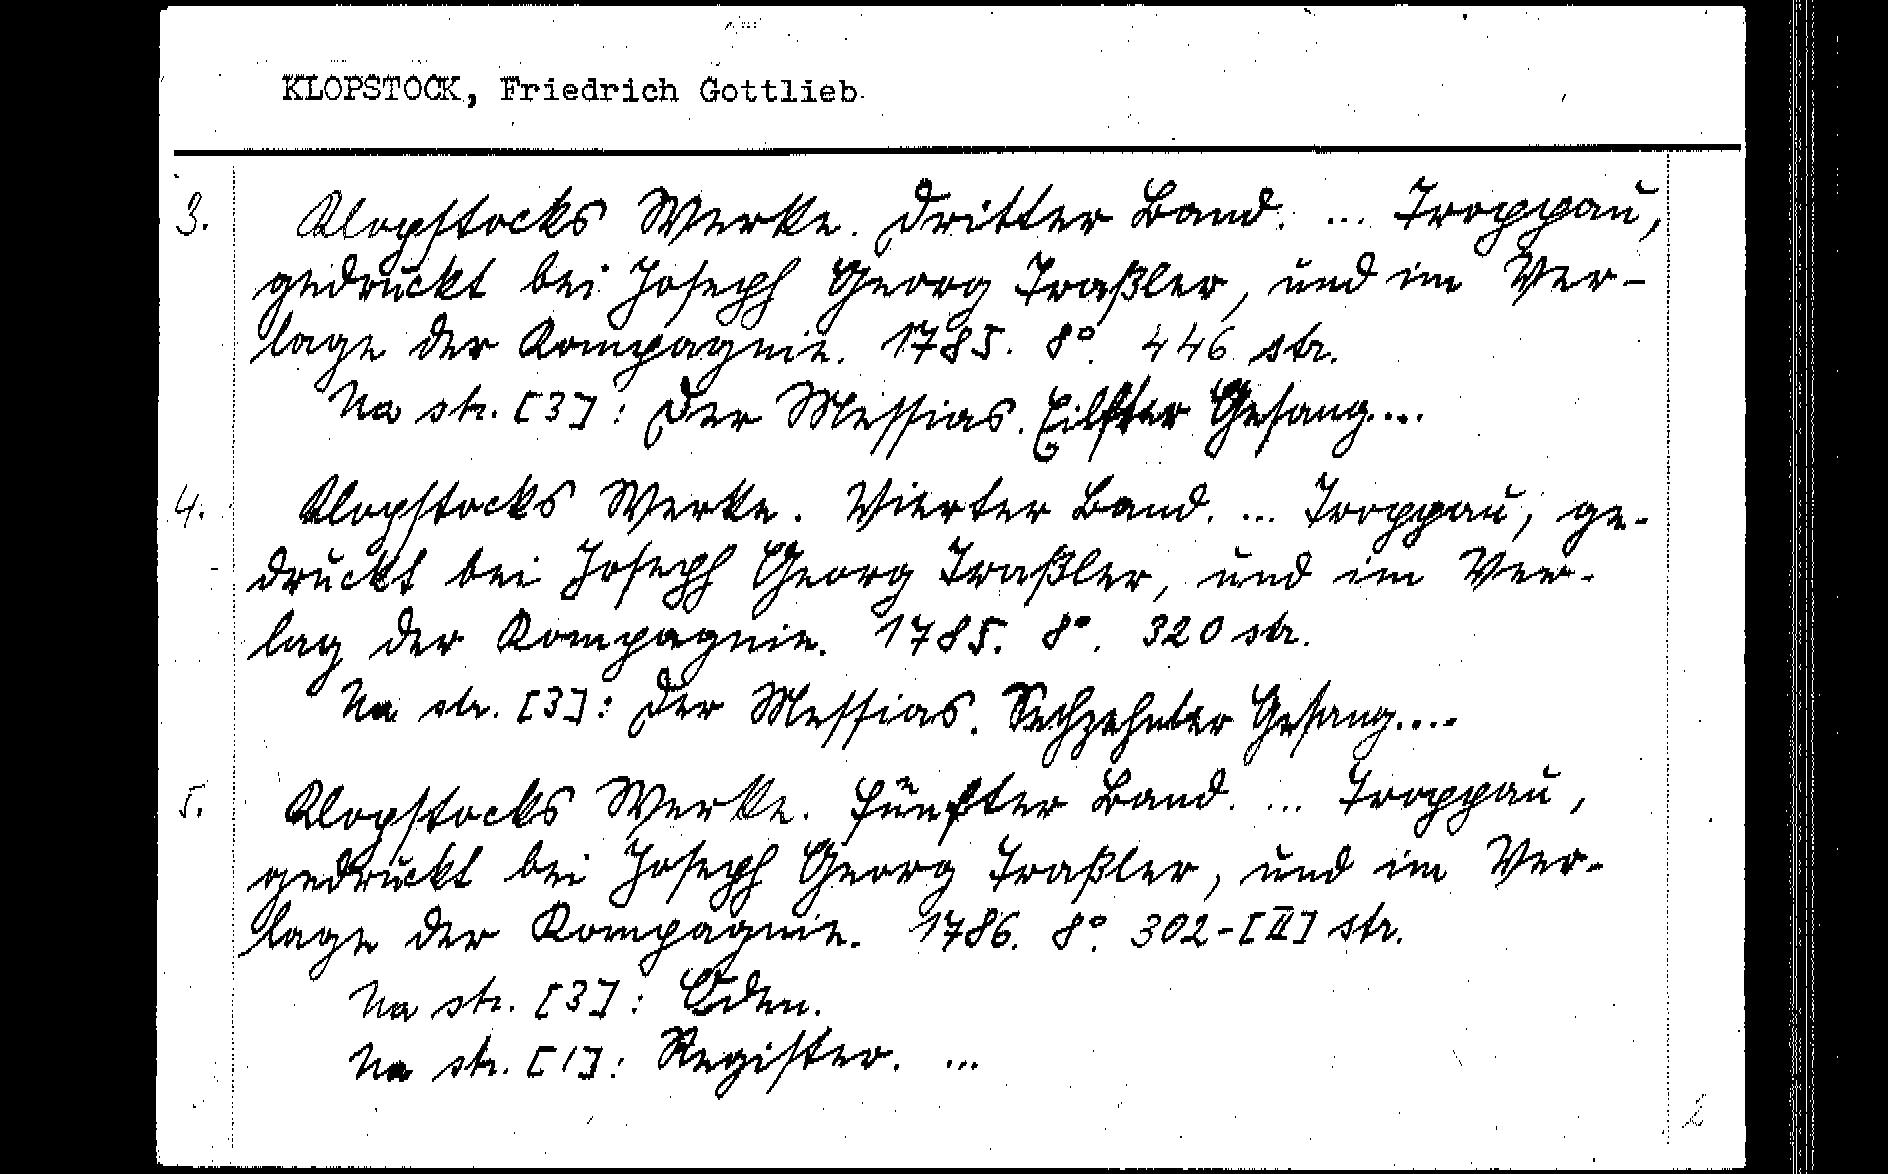 KLOPSTOCK, Friedrich Gottlieb
3. Klopstocks Werke. Dritter Band. ... Troppau,
gedruckt bei Joseph Georg Traßler, und im Ver-
lage der Kompagnie. 1785. 8°. 446 str.
Na str. [3]: Der Messias. Eilfter Gesang....
4. Klopstocks Werke. Vierter Band. ... Troppau, ge-
druckt bei Joseph Georg Traßler, und im Ver-
lag der Kompagnie. 1785. 8°. 320 str.
Na str. [3]: Der Messias. Sechzehnter Gesang....
5. Klopstocks Werke. Fünfter Band. ... Troppau,
gedruckt bei Joseph Georg Traßler, und im Ver-
lage der Kompagnie. 1786. 8°. 302-[II] str.
Na str. [3]: Oden.
Na str. [1]: Register. ...
2